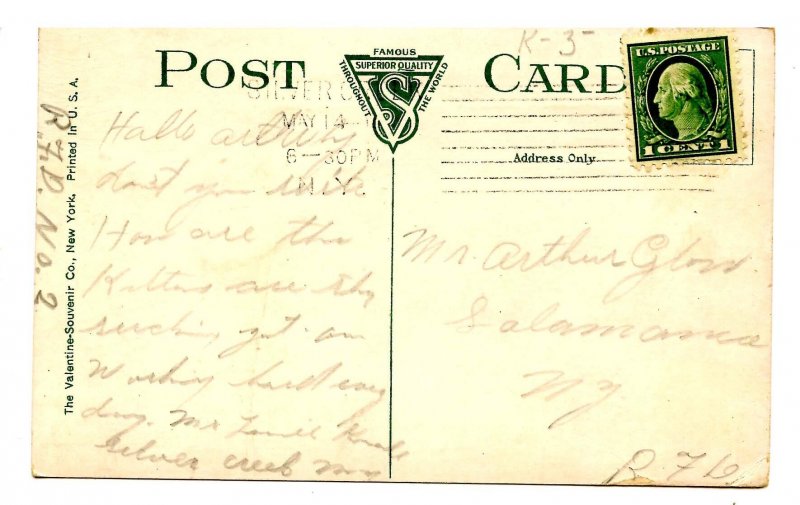 K-3-
POST CARD
FAMOUS
SUPERIOR QUALITY
THROUGHOUT THE WORLD
VS
U.S. POSTAGE
1 CENT 1
SILVER C
MAY 14
6-30 PM
N.Y.
Address Only.
The Valentine-Souvenir Co., New York. Printed in U. S. A.
R.F.D. No. 2
Hallo
dont you write
How are the
Kittens are they
sucking yet am
Working hard every
day. Mr
Silver creek N.Y.
Mr Arthur Glow
Salamanca
N.Y.